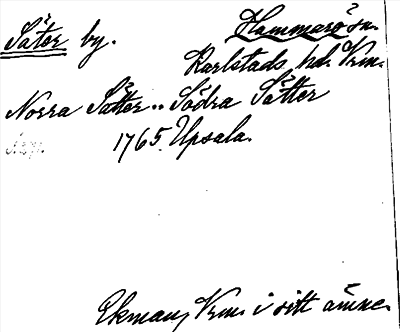 Säter by. Hammarö sn.
Karlstads hd. Vrm.
Norra Sätter, Södra Sätter
1765 Upsala.
Ekman, Vrm. i sitt ämne.